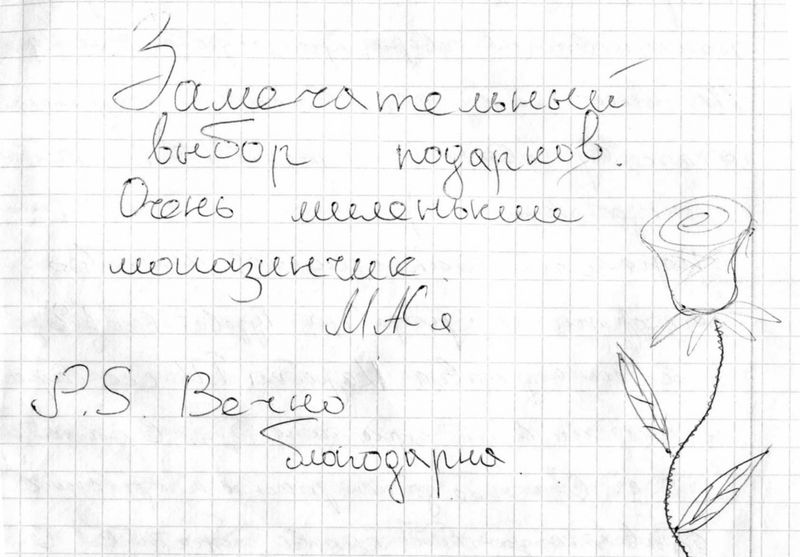 Замечательный
выбор подарков.
Очень миленький
магазинчик.
МАСя
P.S. Вечно
благодарна.